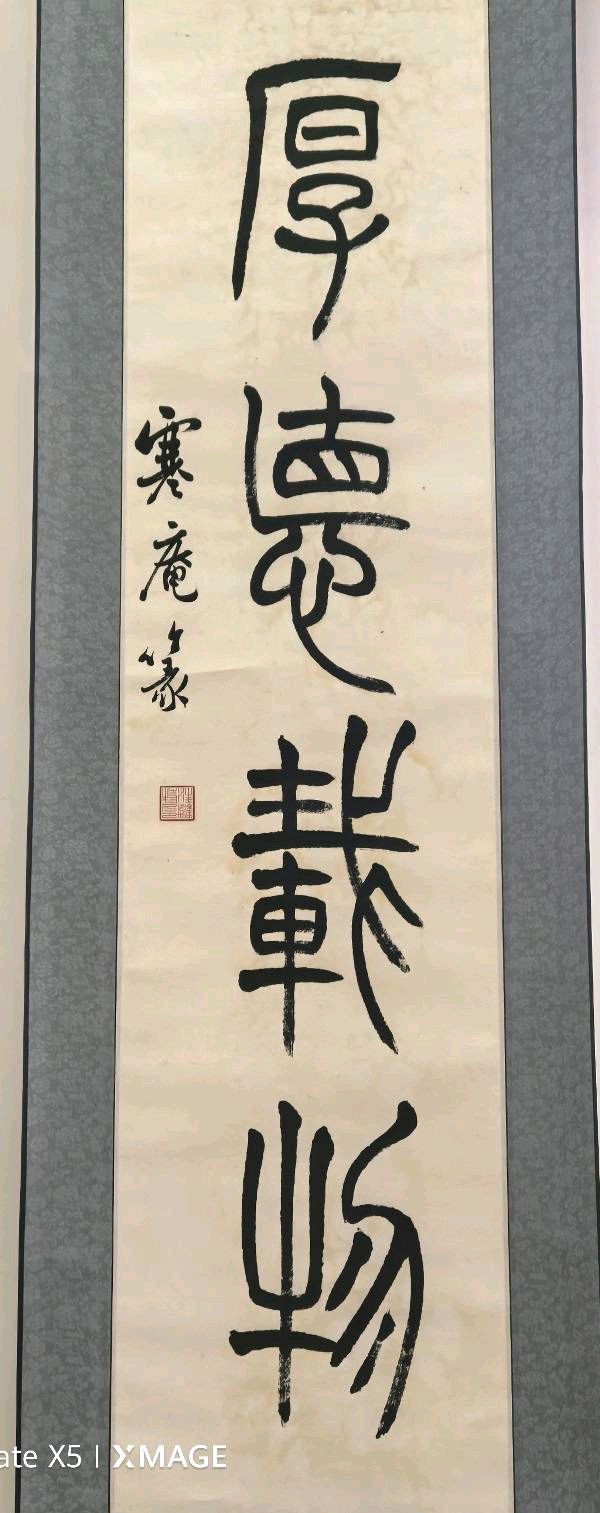 厚德載物
寒庵篆
ate X5 | XMAGE